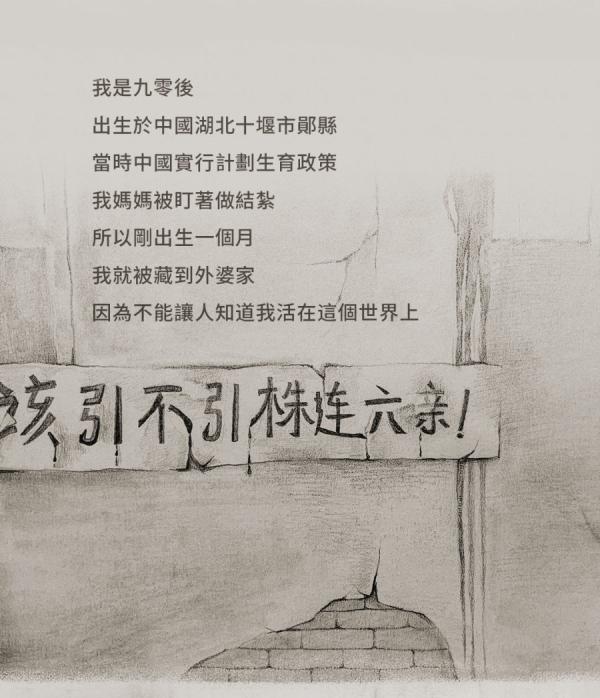 我是九零後
出生於中國湖北十堰市鄖縣
當時中國實行計劃生育政策
我媽媽被盯著做結紮
所以剛出生一個月
我就被藏到外婆家
因為不能讓人知道我活在這個世界上
该引不引株连六亲!